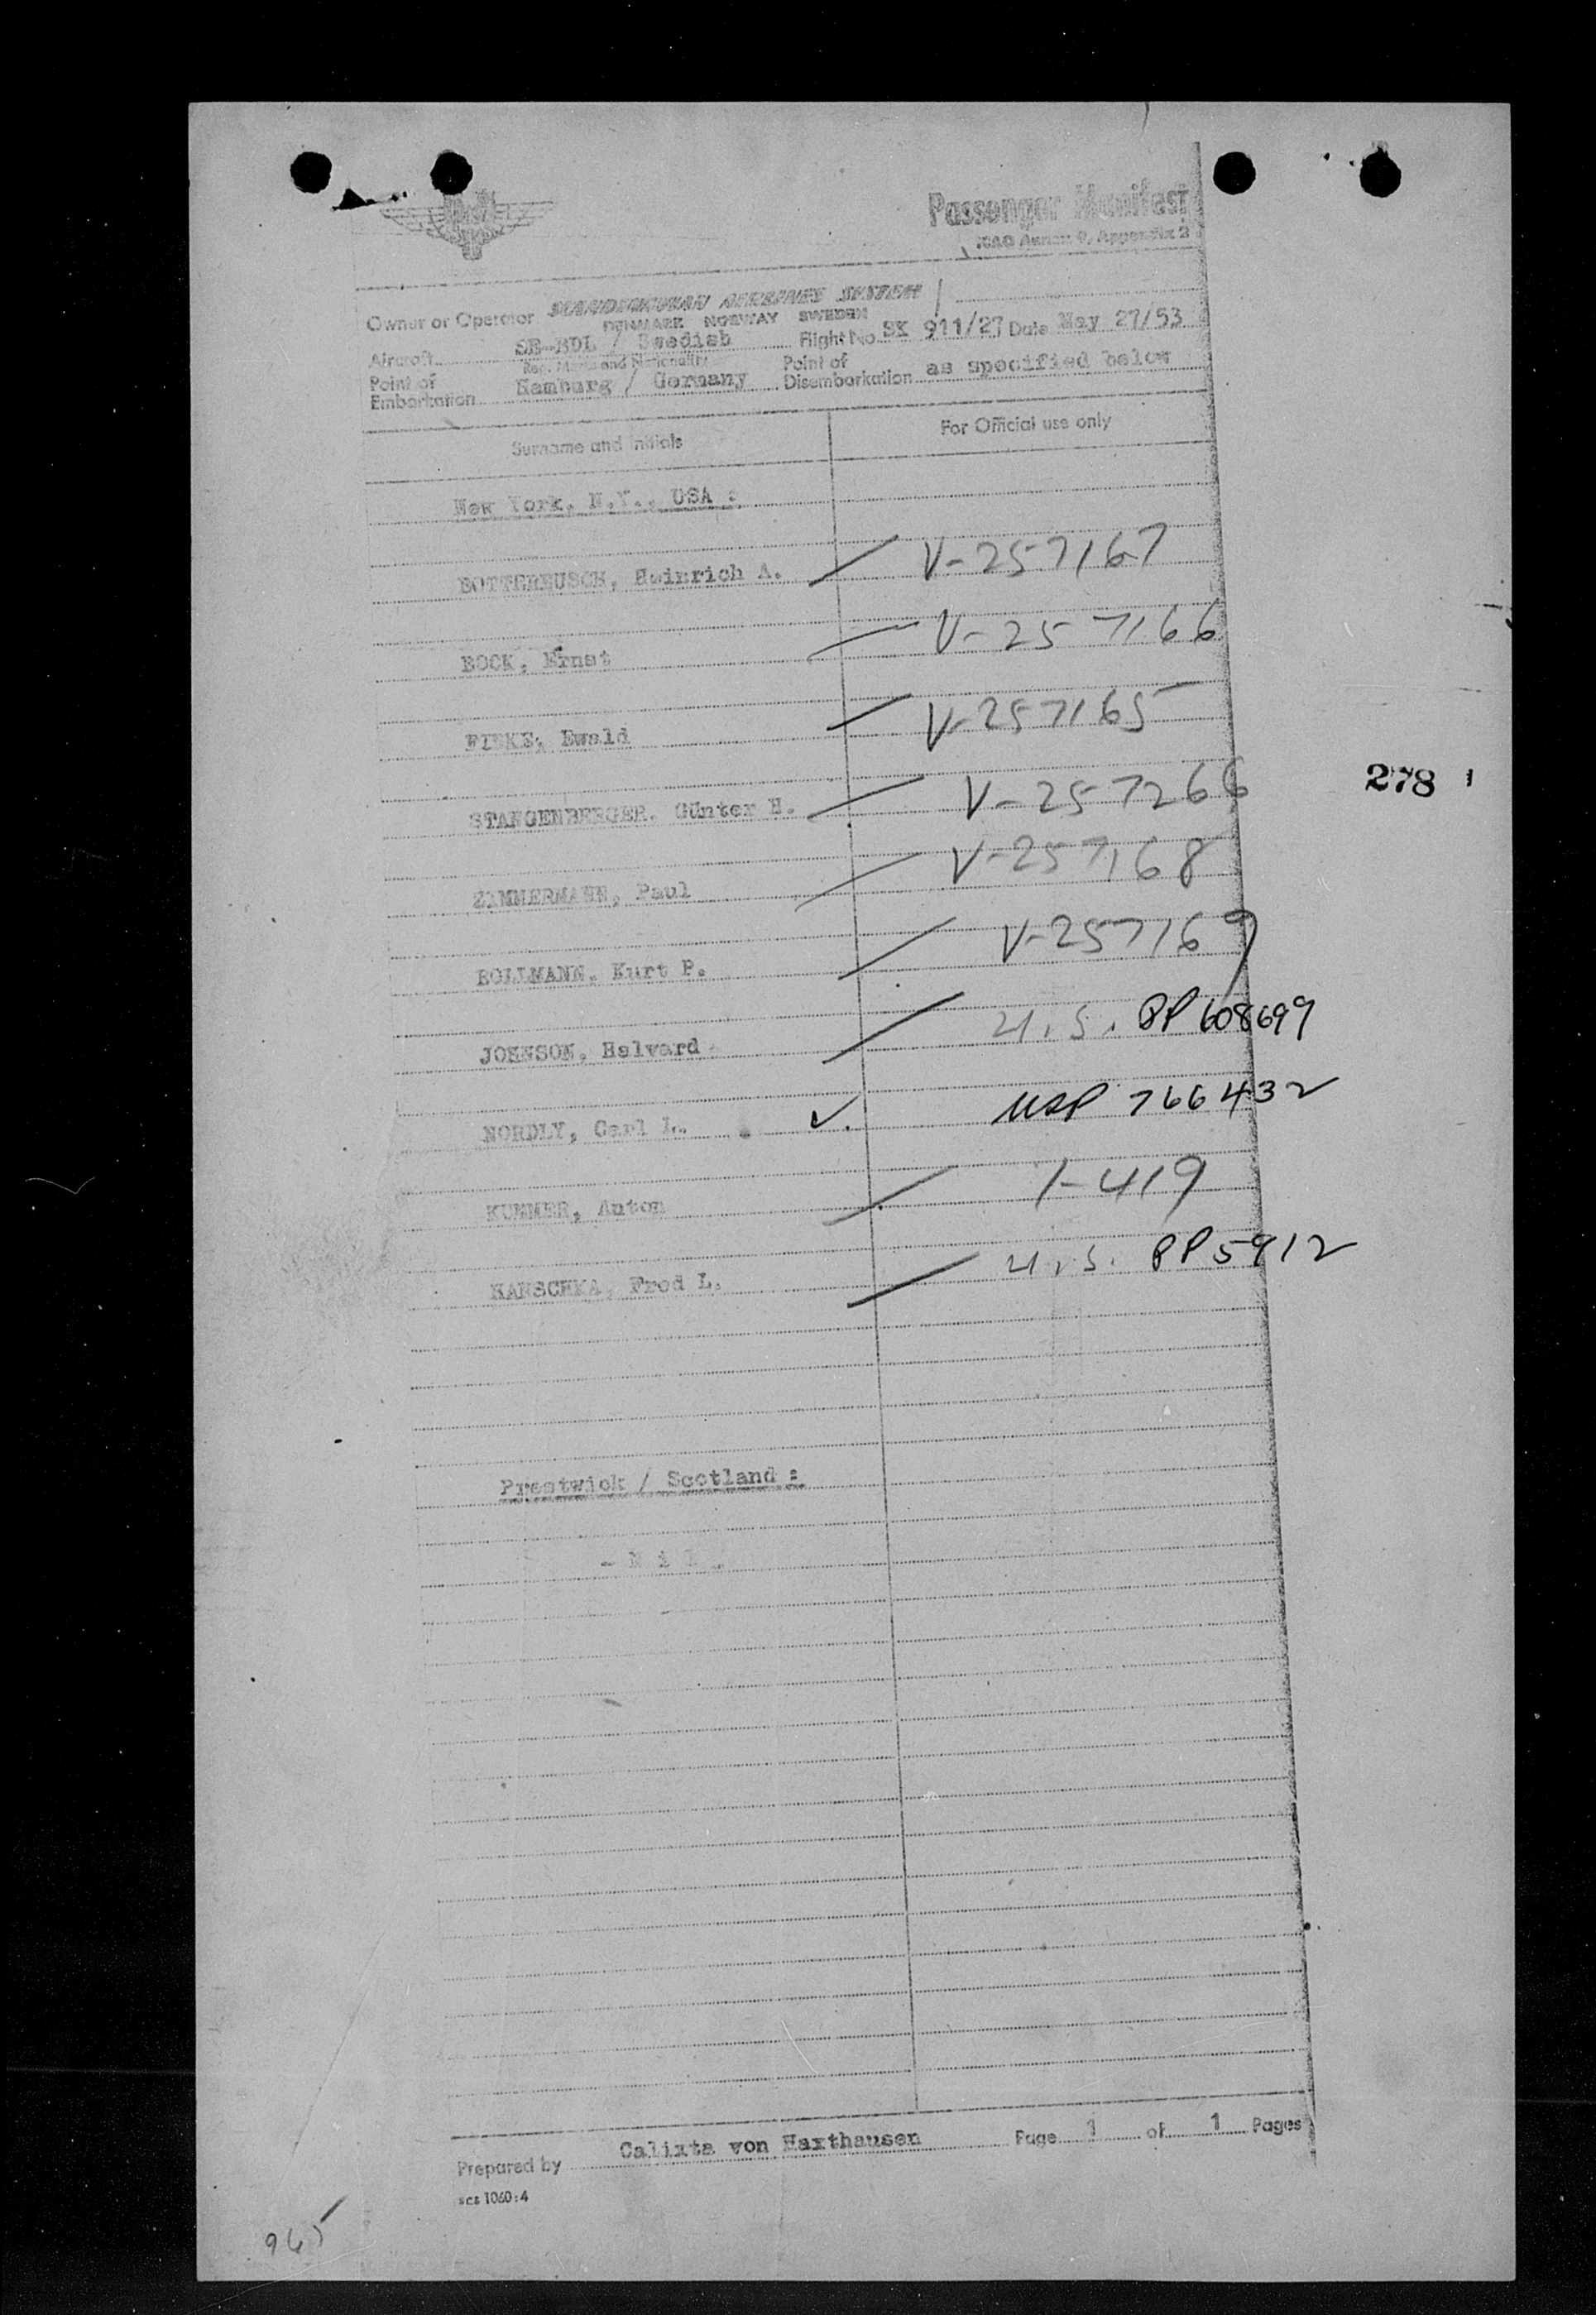 Passenger Manifest
ICAO Annex 9, Appendix 2
Owner or Operator SCANDINAVIAN AIRLINES SYSTEM
DENMARK NORWAY SWEDEN
Aircraft SE-BDL / Swedish Flight No SK 911/27 Date May 27/53
Reg. Marks and Nationality
Point of Embarkation Hamburg / Germany Point of Disembarkation as specified below
Surname and initials For Official use only
New York, N.Y., USA :
BOTTEREUSCH, Heinrich A. V-257167
BOCK, Ernst V-257166
Ewald V-257165
278
STANGENBERGER, Günter H. V-257266
ZIMMERMANN, Paul V-257168
BOLLMANN, Kurt P. V-257169
JOHNSON, Halvard U.S. PP 608699
NORDLY, Carl L. ✓. USP 766432
KUMMER, Anton 1-419
HANSCHKA, Fred L. U.S. PP 5912
Prestwick / Scotland :
- N i l -
Prepared by Calixta von Haxthausen Page 1 of 1 Pages
scs 1060:4
965